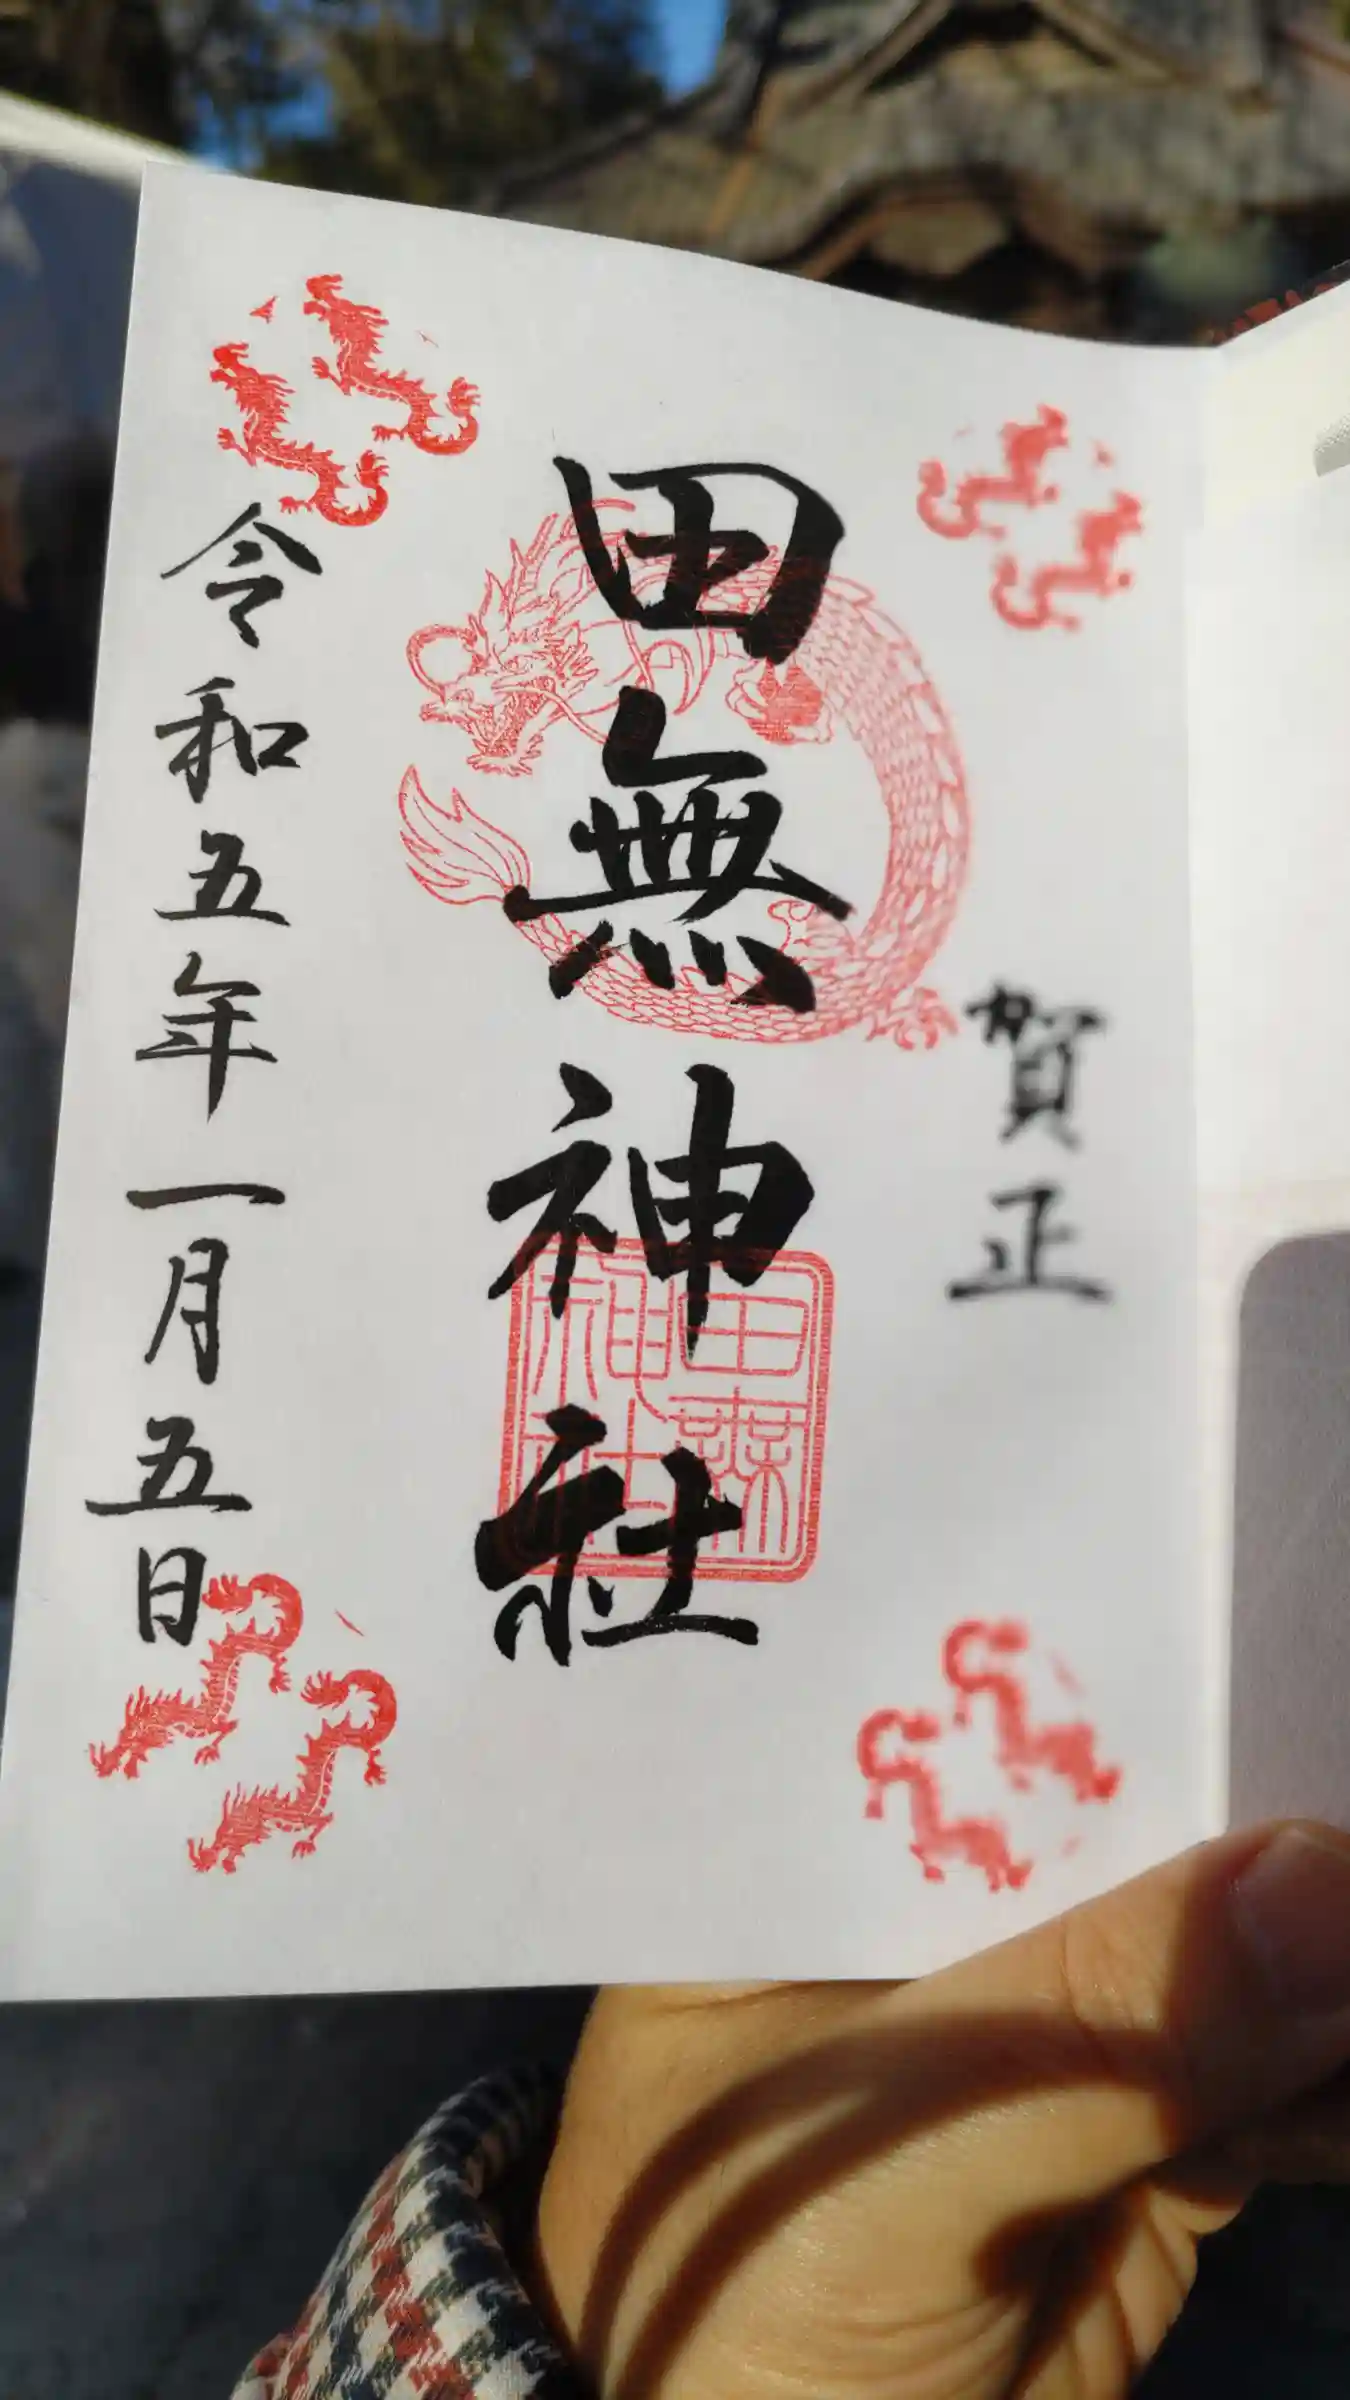 賀正
田無神社
田無神社
令和五年一月五日